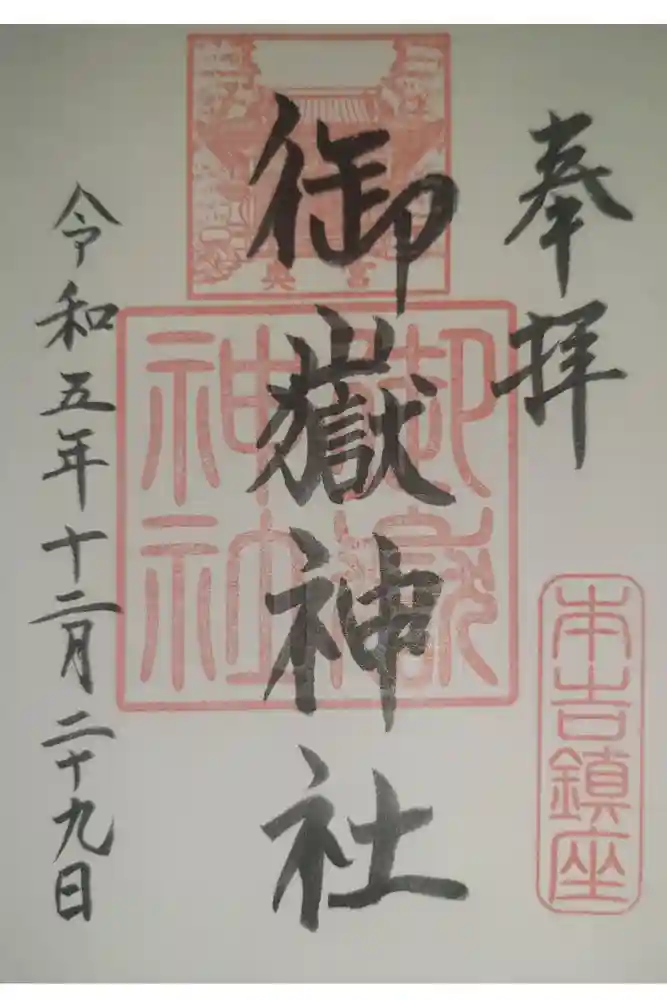 奉拝
本吉鎮座
奥宮
御嶽神社
御嶽
神社
令和五年十二月二十九日